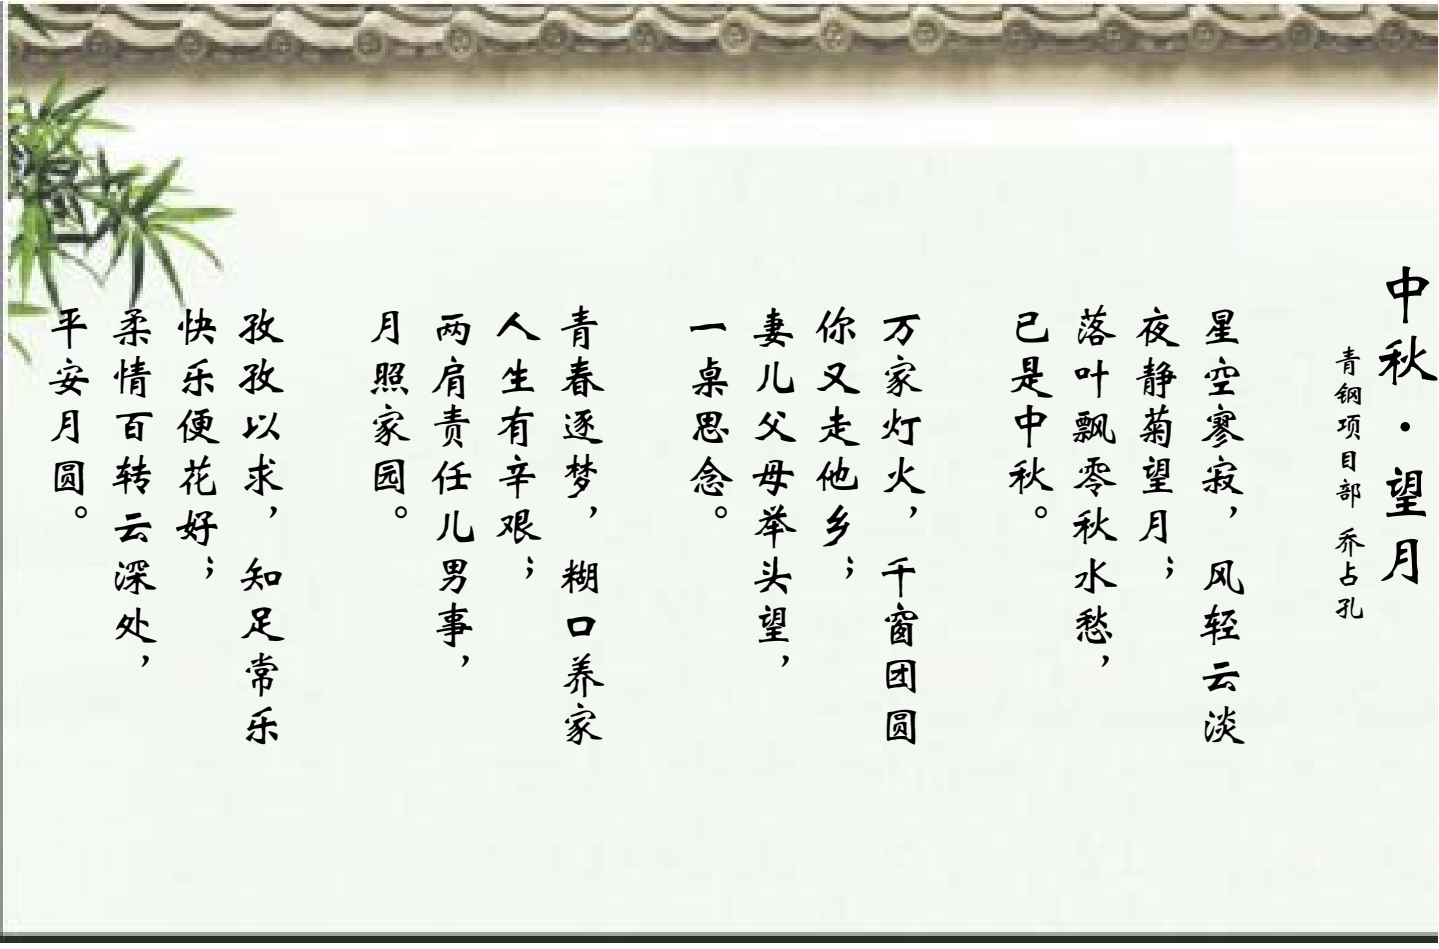 中秋·望月
青钢项目部 乔占孔
星空寥寂，风轻云淡
夜静菊望月；
落叶飘零秋水愁，
已是中秋。
万家灯火，千窗团圆
你又走他乡；
妻儿父母举头望，
一桌思念。
青春逐梦，糊口养家
人生有辛艰；
两肩责任儿男事，
月照家园。
孜孜以求，知足常乐
快乐便花好；
柔情百转云深处，
平安月圆。